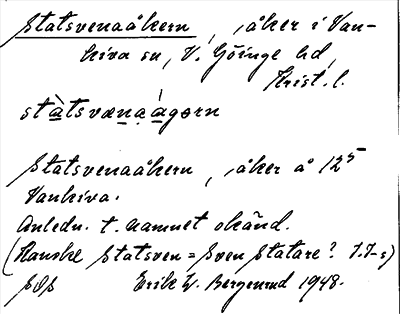 Statsvenaåkern, åker i Van-
kiva sn, V. Göinge hd,
Krist. l.
stàtsvænaágərn
Statsvenaåkern, åker å 12⁵
Vankiva.
Anledn. t. namnet okänd.
(Kanske Statsven = Sven Statare? I.I-s)
Erik W. Bergenrud 1948.